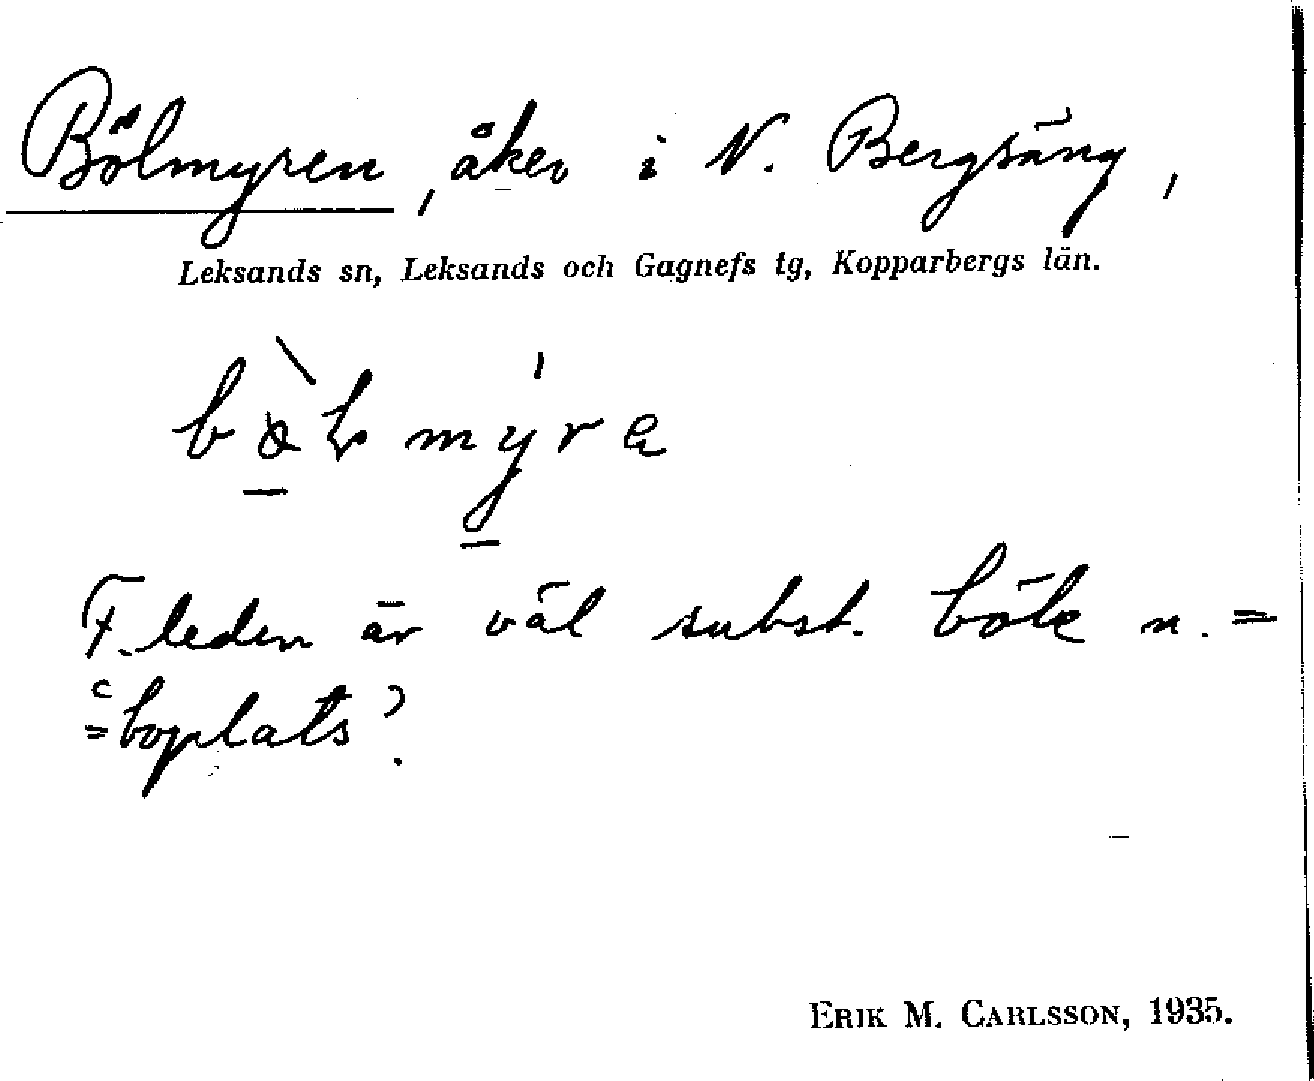 Bölmyren, åker i N. Bergsäng,
Leksands sn, Leksands och Gagnefs tg, Kopparbergs län.
F. leden är väl subst. böle n. =
= boplats?
ERIK M. CARLSSON, 1935.